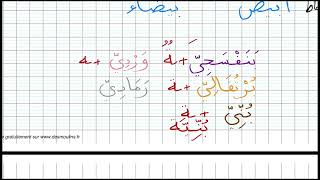 أبيض بيضاء
بَنَفْسَجِيّ + ـةٌ وَرْدِيّ + ـة
بُرْتُقَالِيّ + ـة رَمَادِيّ
بُنِّيّ + ـة
بُنِّيَّة
gratuitement sur www.desmoulins.fr